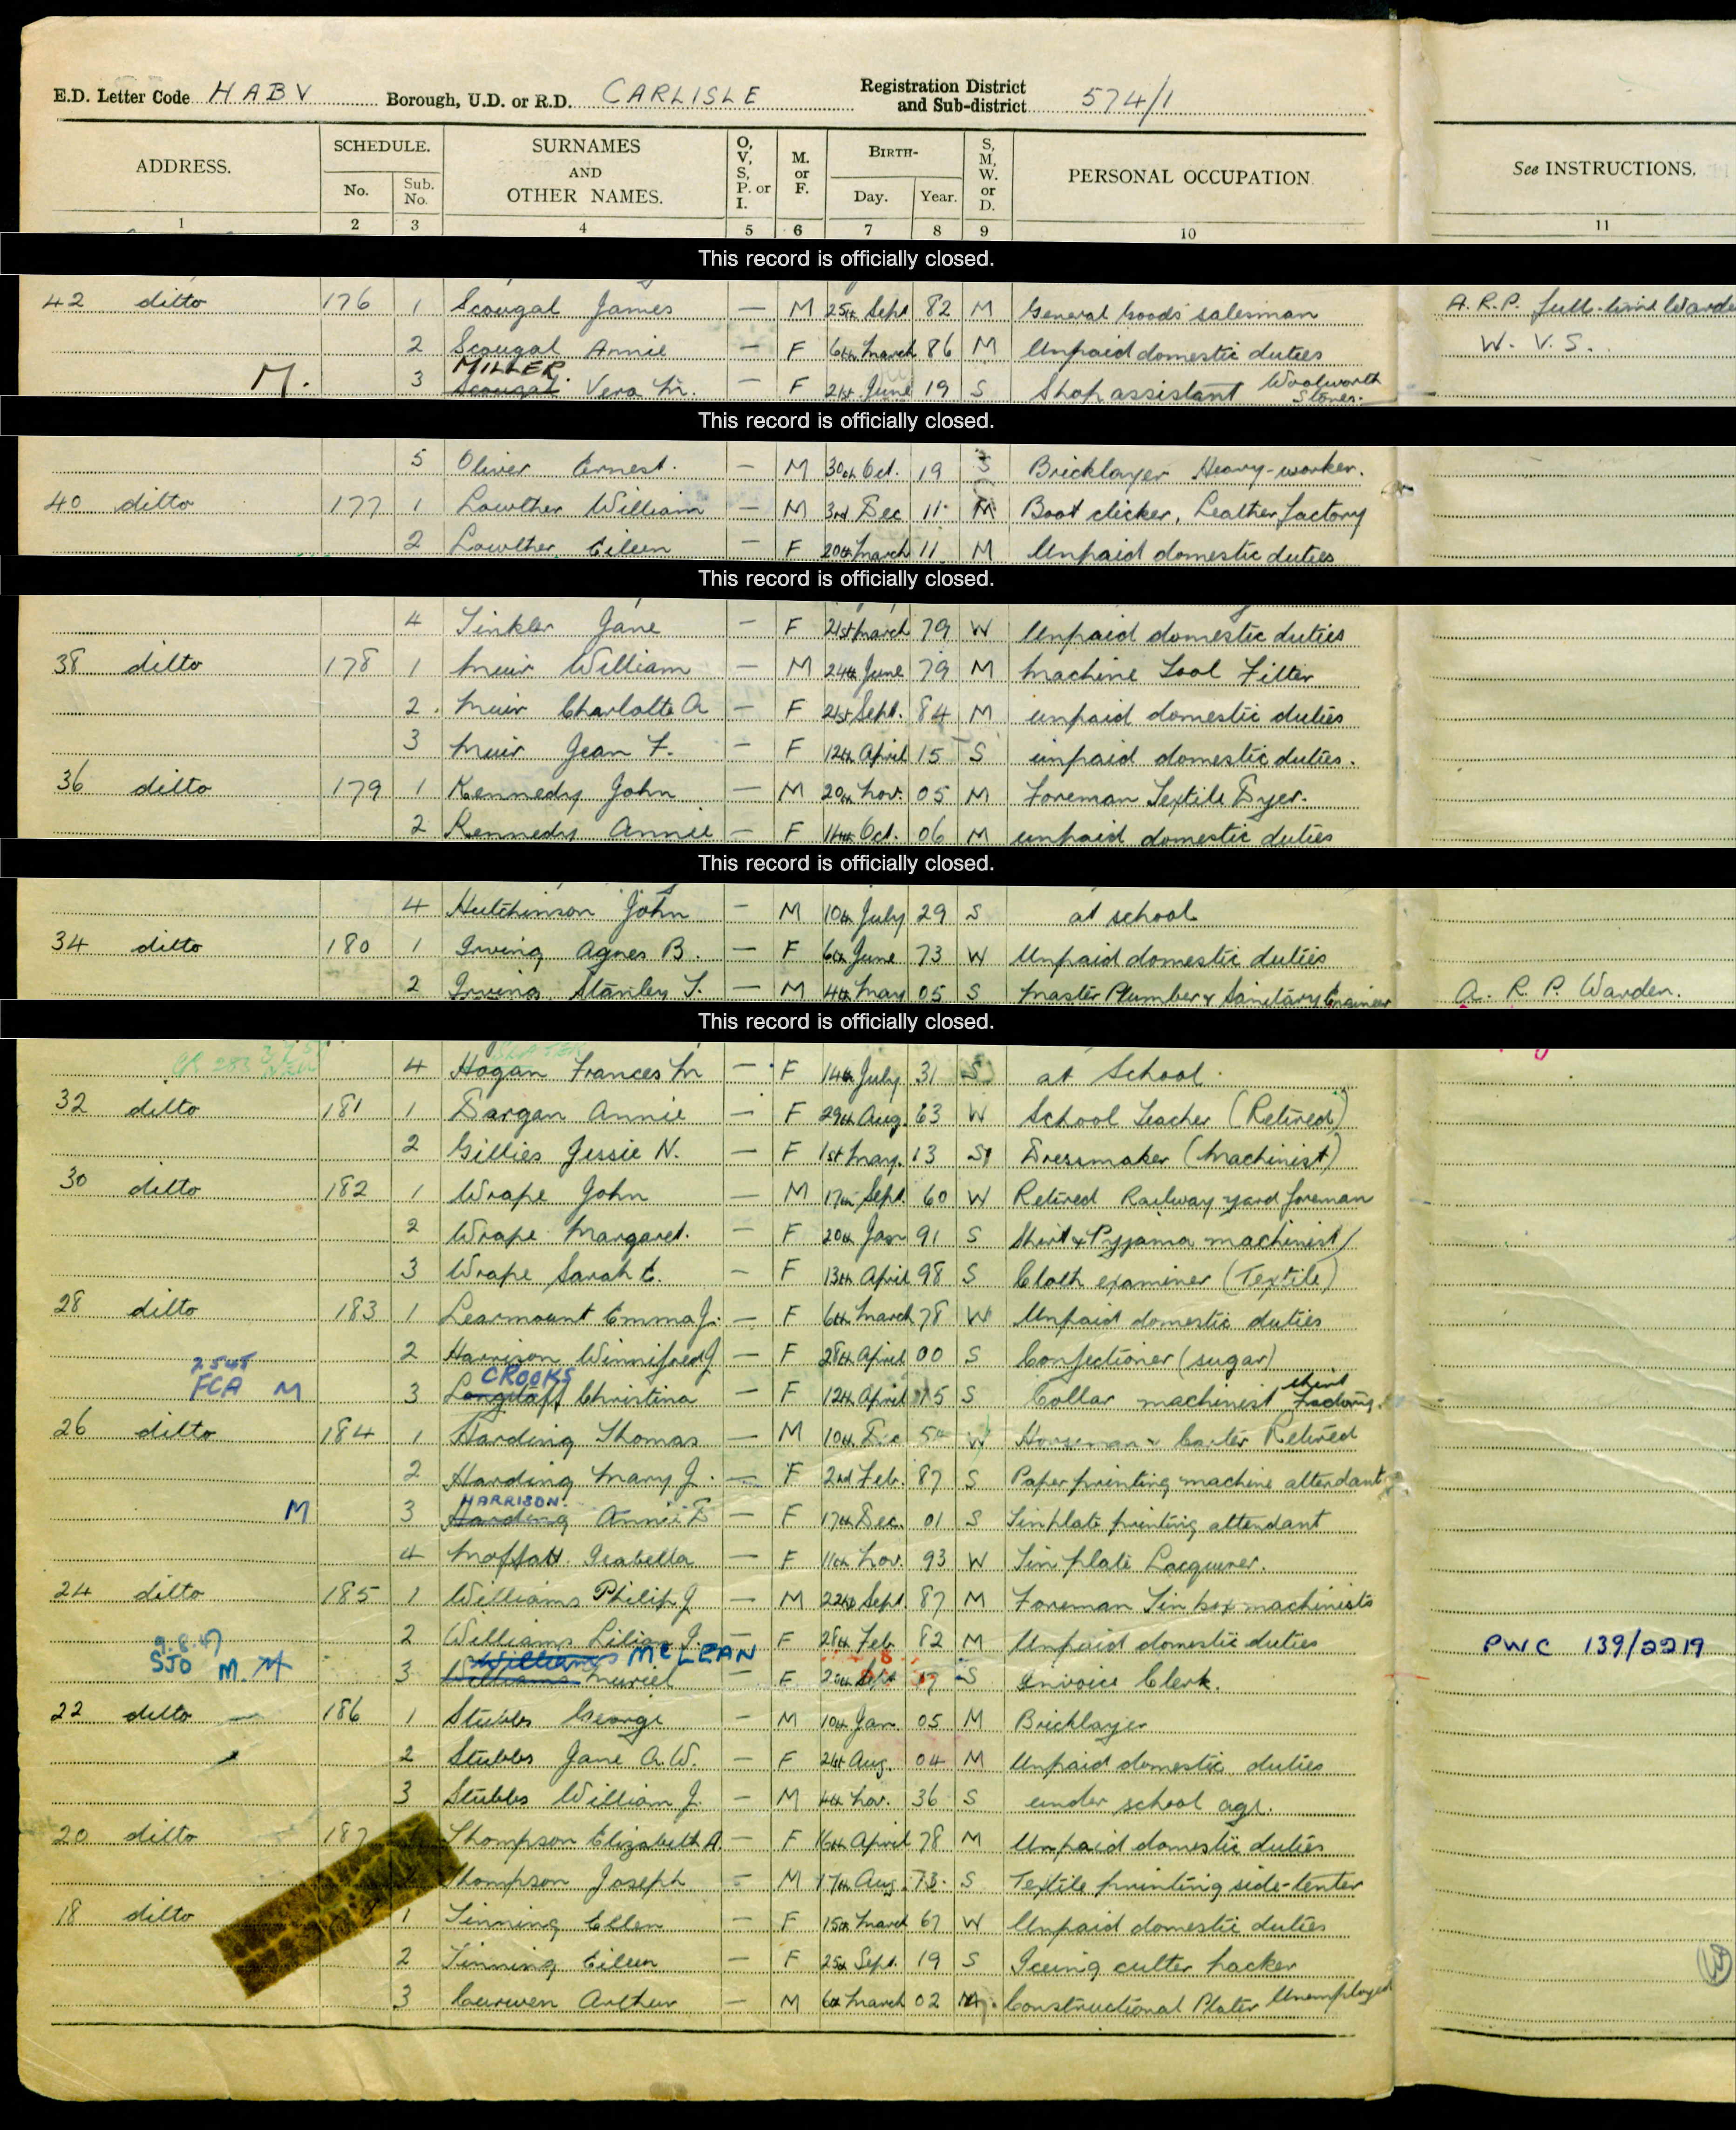 E.D. Letter Code HABV Borough, U.D. or R.D. CARLISLE Registration District and Sub-district 574/1
ADDRESS. SCHEDULE. No. Sub. No. SURNAMES AND OTHER NAMES. O, V, S, P. or I. M. or F. BIRTH- Day. Year. S, M, W. or D. PERSONAL OCCUPATION See INSTRUCTIONS.
1 2 3 4 5 6 7 8 9 10 11
This record is officially closed.
42 ditto 176 1 Scougal James — M 25th Sept 82 M General Goods salesman A.R.P. full-time Warde
2 Scougal Annie — F 6th March 86 M Unpaid domestic duties W.V.S.
M. 3 MILLER Scougal Vera M. — F 21st June 19 S Shop assistant Woolworth Stores.
This record is officially closed.
5 Oliver Ernest. — M 30th Oct. 19 S Bricklayer Heavy-worker.
40 ditto 177 1 Lowther William — M 3rd Dec 11 M Boot clicker, Leather factory
2 Lowther Eileen — F 20th March 11 M Unpaid domestic duties
This record is officially closed.
4 Tinkler Jane — F 21st March 79 W Unpaid domestic duties
38 ditto 178 1 Muir William — M 24th June 79 M Machine Tool Fitter
2. Muir Charlotte A — F 21st Sept. 84 M unpaid domestic duties
3 Muir Jean F. — F 12th April 15 S unpaid domestic duties.
36 ditto 179 1 Kennedy John — M 20th Nov. 05 M Foreman Textile Dyer.
2 Kennedy Annie — F 14th Oct. 06 M unpaid domestic duties
This record is officially closed.
4 Hutchinson John — M 10th July 29 S at school
34 ditto 180 1 Irving Agnes B. — F 6th June 73 W Unpaid domestic duties
2 Irving Stanley T. — M 4th May 05 S Master Plumber & Sanitary Engineer A. R. P. Warden.
This record is officially closed.
4 Hogan Frances M — F 14th July 31 S at School
32 ditto 181 1 Dargan Annie — F 29th Aug. 63 W School Teacher (Retired)
2 Gillies Jessie N. — F 1st May. 13 S Dressmaker (Machinist)
30 ditto 182 1 Wrape John — M 17th Sept. 60 W Retired Railway yard foreman
2 Wrape Margaret. — F 20th Jan 91 S Shirt & Pyjama machinist
3 Wrape Sarah E. — F 13th April 98 S Cloth examiner (Textile)
28 ditto 183 1 Learmount Emma J. — F 6th March 78 W Unpaid domestic duties
2 Harrison Winnifred J — F 28th April 00 S Confectioner (sugar)
FCA M 3 CROOKS Longstaff Christina — F 12th April 15 S Collar machinist shirt Factory.
26 ditto 184 1 Harding Thomas — M 10th Dec 54 W Horseman & Carter Retired
2 Harding Mary J. — F 2nd Feb. 87 S Paper printing machine attendant
M 3 HARRISON. Harding Annie D — F 17th Dec. 01 S Tinplate printing attendant
4 Moffatt Isabella — F 11th Nov. 93 W Tin plate Lacquerer.
24 ditto 185 1 Williams Philip J — M 22nd Sept. 87 M Foreman Tin box machinists
2 Williams Lilian J. — F 28th Feb. 82 M Unpaid domestic duties PWC 139/2219
9.8.47 SJO M. M 3 Williams McLEAN Williams Muriel — F Sept 17 S Invoice Clerk.
22 ditto 186 1 Stubbs George — M 10th Jan. 05 M Bricklayer
2 Stubbs Jane A.W. — F 24th Aug. 04 M Unpaid domestic duties
3 Stubbs William J. — M 4th Nov. 36 S under school age.
20 ditto 187 Thompson Elizabeth A. — F 16th April 78 M Unpaid domestic duties
Thompson Joseph — M 17th Aug. 73. S Textile printing side-tenter
18 ditto 1 Tinning Ellen — F 15th March 67 W Unpaid domestic duties
2 Tinning Eileen — F 25th Sept. 19 S Iceing cutter packer
3 Curwen Arthur — M 6th March 02 M. Constructional Plater Unemployed